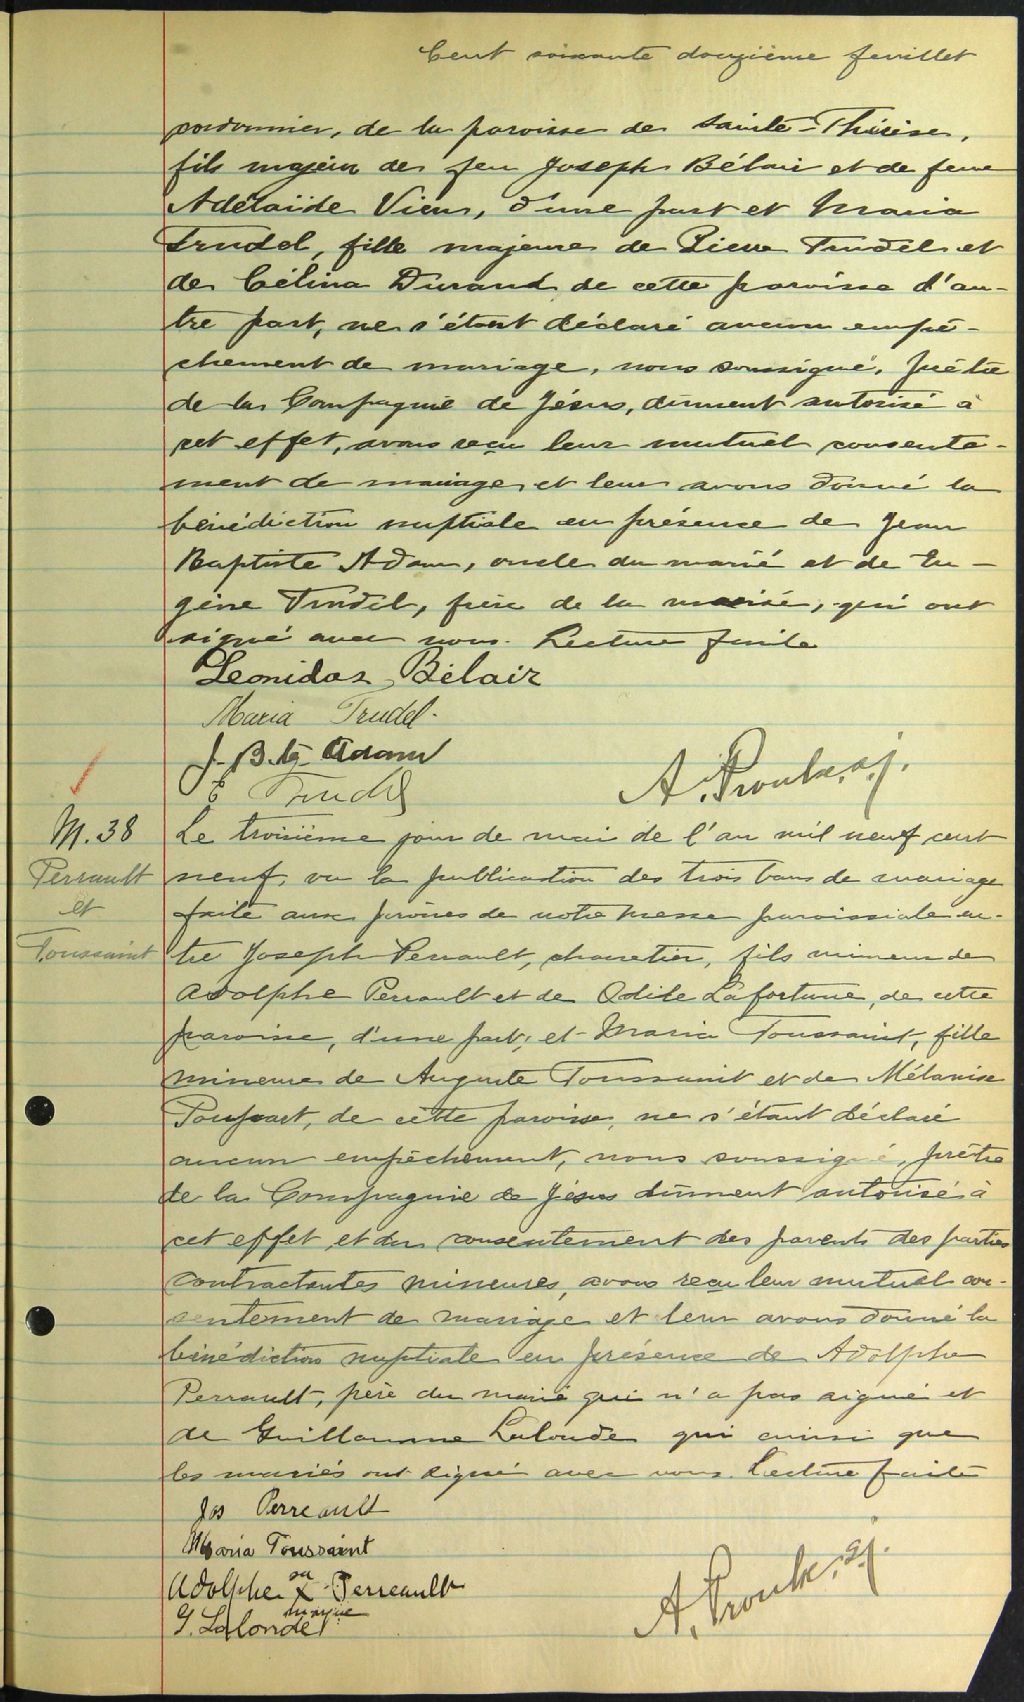 Cent soixante douzième feuillet
cordonnier, de la paroisse de Sainte-Thérèse,
fils majeur de feu Joseph Bélair et de feue
Adélaïde Viens, d'une part et Maria
Trudel, fille majeure de Pierre Trudel et
de Célina Durand de cette paroisse d'au-
tre part, ne s'étant déclaré aucun empê-
chement de mariage, nous soussigné, prêtre
de la Compagnie de Jésus, dûment autorisé à
cet effet, avons reçu leur mutuel consente-
ment de mariage et leur avons donné la
bénédiction nuptiale en présence de Jean
Baptiste Adam, oncle du marié et de Eu-
gène Trudel, frère de la mariée, qui ont
signé avec nous. Lecture faite
Leonidas Bélair
Maria Trudel.
J. Bte Adam
E Trudel
A. Proulx, s.j.
M. 38
Perrault
et
Toussaint
Le troisième jour de mai de l'an mil neuf cent
neuf, vu la publication des trois bans de mariage
faite aux prônes de notre messe paroissiale en-
tre Joseph Perrault, charretier, fils mineur de
Adolphe Perrault et de Odile Lafortune, de cette
paroisse, d'une part, et Maria Toussaint, fille
mineure de Auguste Toussaint et de Mélanise
de cette paroisse, ne s'étant déclaré
aucun empêchement, nous soussigné, prêtre
de la Compagnie de Jésus dûment autorisé à
cet effet et du consentement des parents des parties
contractantes mineures, avons reçu leur mutuel con-
sentement de mariage et leur avons donné la
bénédiction nuptiale en présence de Adolphe
Perrault, père du marié qui n'a pas signé et
de Guillaume Lalonde qui ainsi que
les mariés ont signé avec nous. Lecture faite
Jos Perreault
Maria Toussaint
Adolphe sa X marque Perreault
G. Lalonde
A. Proulx, s.j.